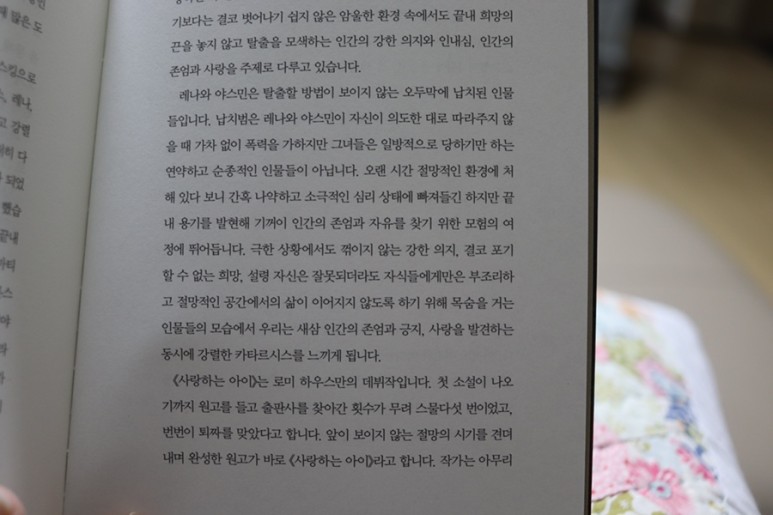 때 많은 도
스킹으로
레나,
고 강렬
다
되었
했습
끝내
기보다는 결코 벗어나기 쉽지 않은 암울한 환경 속에서도 끝내 희망의
끈을 놓지 않고 탈출을 모색하는 인간의 강한 의지와 인내심, 인간의
존엄과 사랑을 주제로 다루고 있습니다.
레나와 야스민은 탈출할 방법이 보이지 않는 오두막에 납치된 인물
들입니다. 납치범은 레나와 야스민이 자신이 의도한 대로 따라주지 않
을 때 가차 없이 폭력을 가하지만 그녀들은 일방적으로 당하기만 하는
연약하고 순종적인 인물들이 아닙니다. 오랜 시간 절망적인 환경에 처
해 있다 보니 간혹 나약하고 소극적인 심리 상태에 빠져들긴 하지만 끝
내 용기를 발현해 기꺼이 인간의 존엄과 자유를 찾기 위한 모험의 여
정에 뛰어듭니다. 극한 상황에서도 꺾이지 않는 강한 의지, 결코 포기
할 수 없는 희망, 설령 자신은 잘못되더라도 자식들에게만은 부조리하
고 절망적인 공간에서의 삶이 이어지지 않도록 하기 위해 목숨을 거는
인물들의 모습에서 우리는 새삼 인간의 존엄과 긍지, 사랑을 발견하는
동시에 강렬한 카타르시스를 느끼게 됩니다.
《사랑하는 아이》는 로미 하우스만의 데뷔작입니다. 첫 소설이 나오
기까지 원고를 들고 출판사를 찾아간 횟수가 무려 스물다섯 번이었고,
번번이 퇴짜를 맞았다고 합니다. 앞이 보이지 않는 절망의 시기를 견뎌
내며 완성한 원고가 바로 《사랑하는 아이》라고 합니다. 작가는 아무리